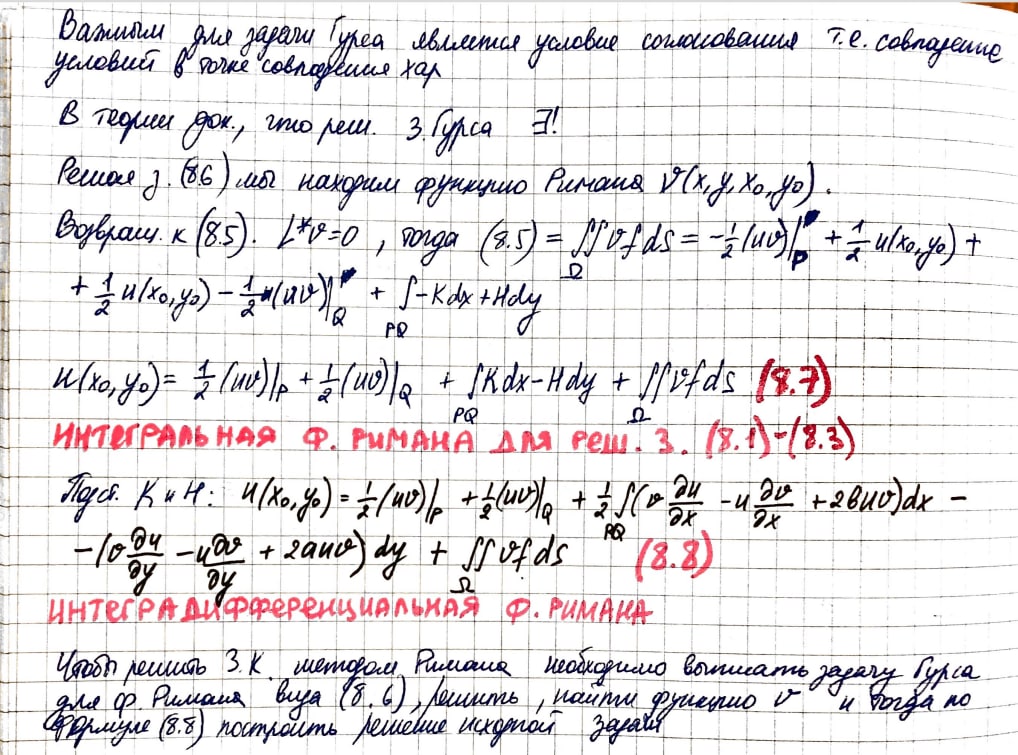 Важным для задачи Гурса является условие согласования т.е. совпадение
условий в точке совпадения хар
В теории док., что реш. з. Гурса ∃!
Решая з. (8.6) мы находим функцию Римана ϑ(x,y,x₀,y₀).
Возвращ. к (8.5). L*ϑ=0, тогда (8.5) = ∬_Ω ϑf ds = -1/2 (uϑ)|_P + 1/2 u(x₀,y₀) +
+ 1/2 u(x₀,y₀) - 1/2 (uϑ)|_Q + ∫_PQ -Kdx+Hdy
u(x₀,y₀) = 1/2 (uϑ)|_P + 1/2 (uϑ)|_Q + ∫_PQ Kdx-Hdy + ∬_Ω ϑf ds (8.7)
ИНТЕГРАЛЬНАЯ Ф. РИМАНА ДЛЯ РЕШ. З. (8.1)-(8.3)
Подст. K и H: u(x₀,y₀) = 1/2 (uϑ)|_P + 1/2 (uϑ)|_Q + 1/2 ∫_PQ (ϑ ∂u/∂x - u ∂ϑ/∂x + 2buϑ)dx -
- (ϑ ∂u/∂y - u ∂ϑ/∂y + 2auϑ) dy + ∬_Ω ϑf ds (8.8)
ИНТЕГРАДИФФЕРЕНЦИАЛЬНАЯ Ф. РИМАНА
Чтобы решить З.К. методом Римана необходимо выписать задачу Гурса
для ф. Римана вида (8.6), решить, найти функцию ϑ и тогда по
формуле (8.8) построить решение исходной задачи